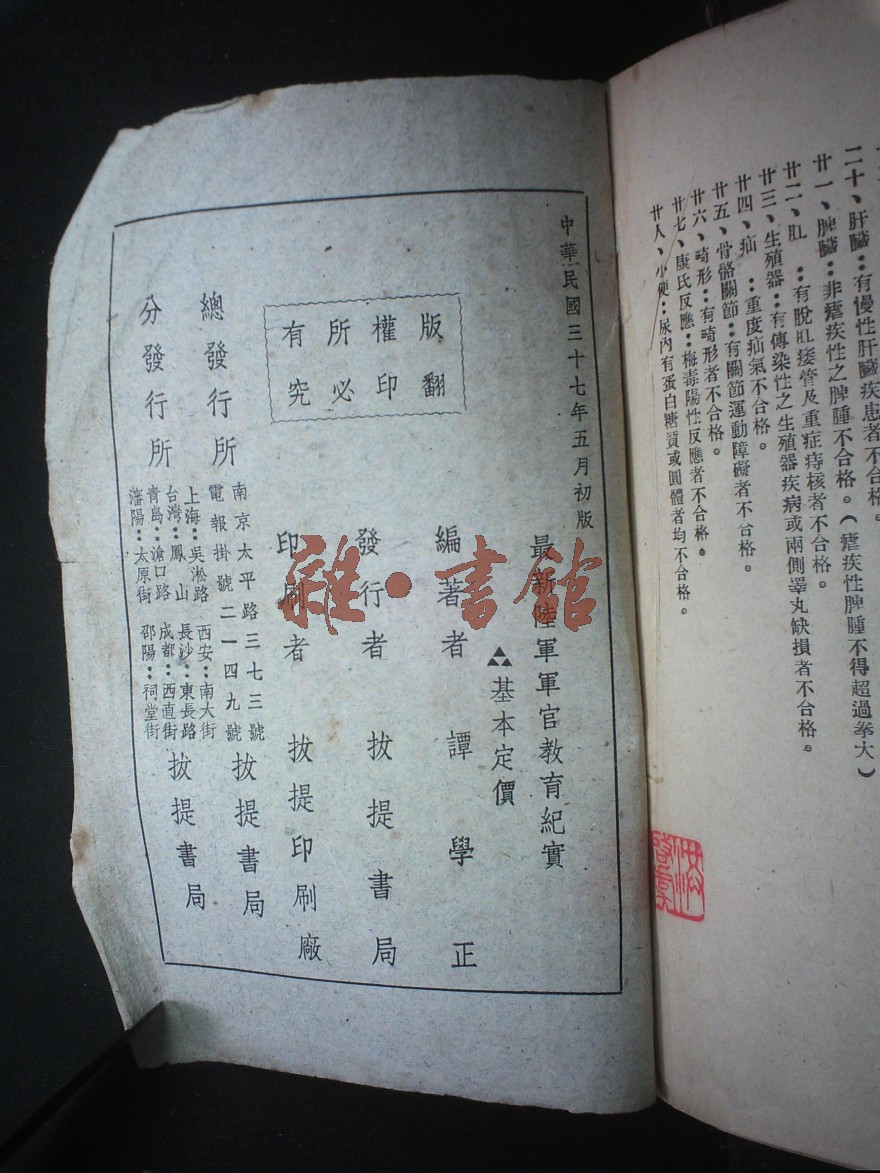 二十、肝臟：有慢性肝臟疾患者不合格。
廿一、脾臟：非瘧疾性之脾腫不合格。（瘧疾性脾腫不得超過拳大）
廿二、肛　：有脫肛痿管及重症痔核者不合格。
廿三、生殖器：有傳染性之生殖器疾病或兩側睪丸缺損者不合格。
廿四、疝　：重度疝氣不合格。
廿五、骨骼關節：有關節運動障礙者不合格。
廿六、畸形：有畸形者不合格。
廿七、康氏反應：梅毒陽性反應者不合格。
廿人、小便：尿內有蛋白糖質或圓體者均不合格。
中華民國三十七年五月初版
最新陸軍軍官教育紀實
基本定價
編著者　譚學正
發行者　拔提書局
印刷者　拔提印刷廠
版權所有
翻印必究
總發行所　南京太平路三七三號　拔提書局
電報掛號二一四九號
分發行所　拔提書局
上海：吳淞路　西安：南大街
台灣：鳳山　長沙：東長路
青島：滄口路　成都：西直街
瀋陽：太原街　邵陽：祠堂街
雜·書館